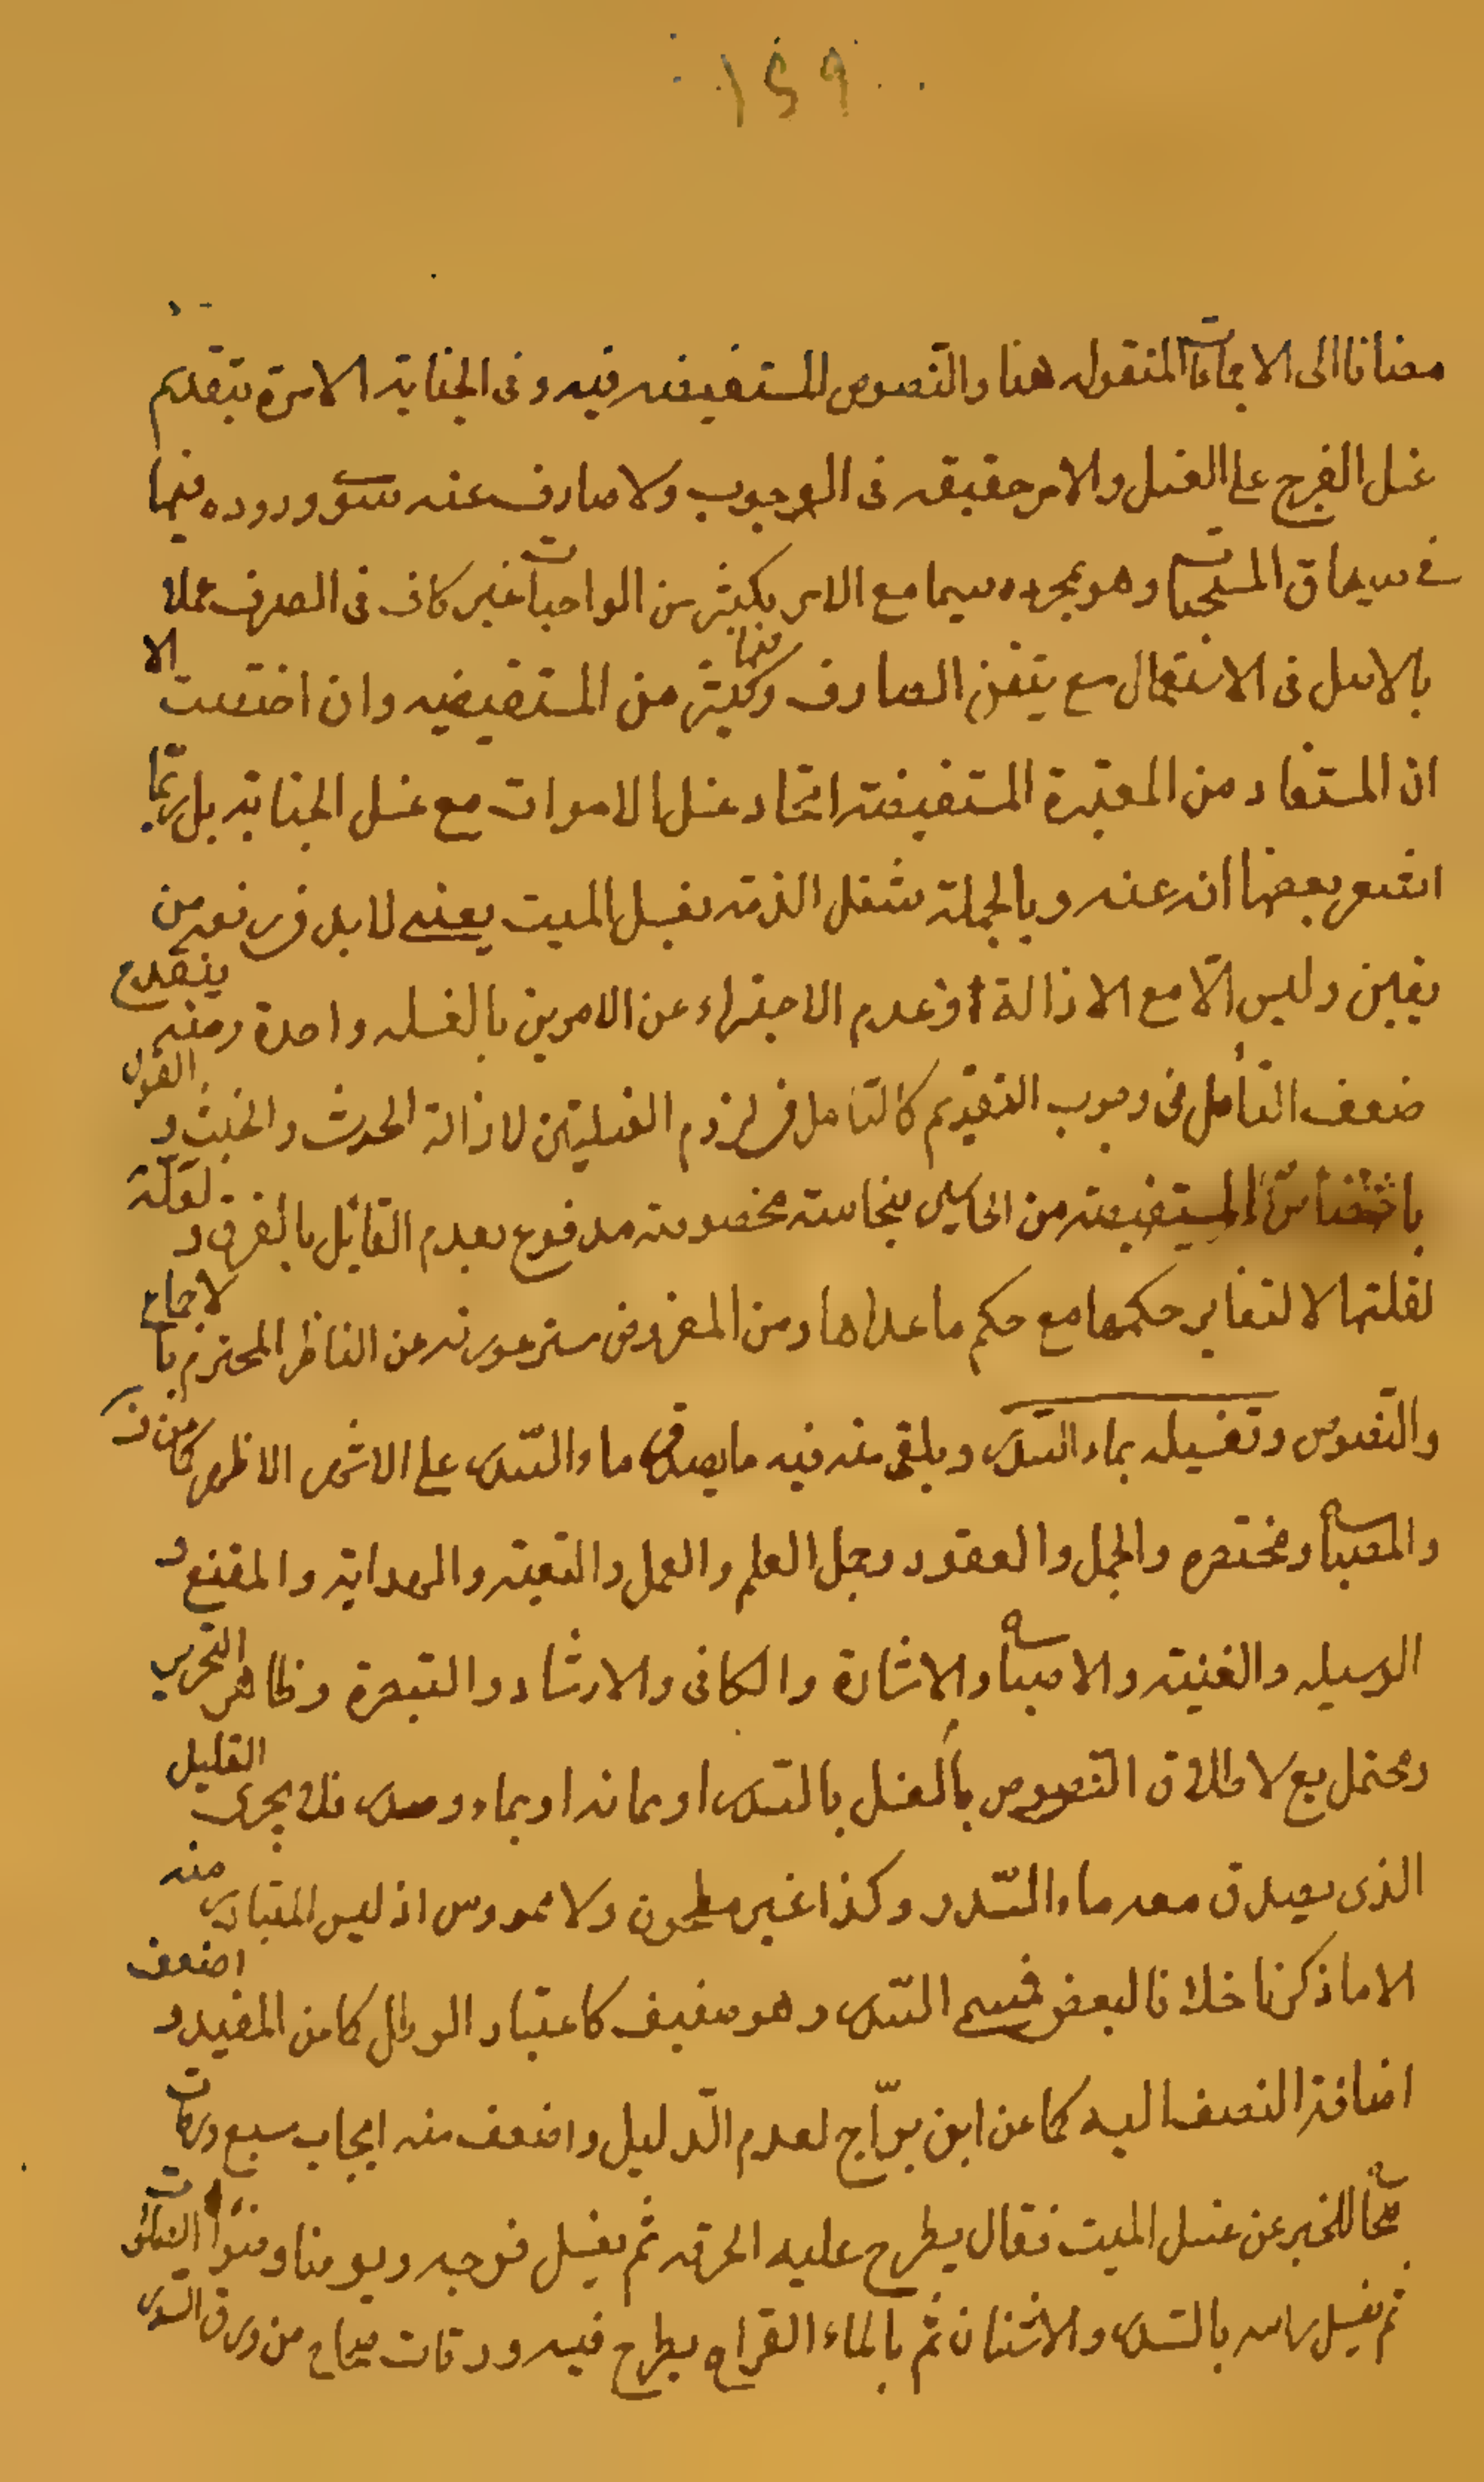 ١٤٩
مضافا الى الاجماعات المنقوله هنا والنصوص المستفيضه فيه وفى الجنابة الامرة بتقديم
غسل الفرج على الغسل والامر حقيقه فى الوجوب ولا صارف عنه سوى وروده فيها
فى سياق المستحبات وهو بمجرده سيما مع الامر بكثير من الواجبات غير كاف فى الصرف عملا
بالاصل فى الاستعمال مع تيقن الصارف وكثير منها من المستفيضه وان اختصت الا
ان المستفاد من المعتبرة المستفيضة اتحاد غسل الاموات مع غسل الجنابة بل ربما
اشعر بعضها انه عنه وبالجملة شغل الذمة بغسل الميت يعنى لا بد فى رفعه من
يقين وليس الا مع الازالة او عدم الاجتزاء عن الامرين بالغسله واحدة ومنه ينقدح
ضعف التأمل فى وجوب التقديم كالتامل فى لزوم الغسلتين لازالة الحدث والخبث والقول
باختصاص المستفيضه من الحاكيين بنجاسته مخصوصة مدفوع بعدم القائل بالفرق و لقلة
لقلتها لا لتغاير حكمها مع حكم ما عداها ومن المفروض ستر عورته عن الناظر المحترم بالاجماع
والنصوص وتغسيله بماء السدر ويلقى منه فيه ما يصدق ماء السدر على الاشهر الاظهر كما عن
والمصباح ومختصره والجمل والعقود وجمل العلم والعمل والتقية والهداية والمقنع و
الوسيله والغنية والاصباح والاشارة والكافى والارشاد والتبصرة وظاهر التحرير
ويحتمل مع لاطلاق النصوص بالغسل بالسدر او بمائه او بماء وسدر فلا يجزى القليل
الذى يصدق معه ماء السدر وكذا غير مطحون ولا ممروس اذ ليس المتبادر منه
الا ما ذكرنا خلافا لبعض فمسمى السدر وهو ضعيف كاعتبار الرطل كما عن المفيد و اضعف
اضافة النصف اليه كما عن ابن براج لعدم الدليل واضعف منه ايجاب سبع ورقات
للخبر عن غسل الميت فقال يطرح عليه الخرقه ثم يغسل فرجه ويوضأ وضوء الصلوة
ثم يغسل راسه بالسدر والاشنان ثم بالماء القراح يطرح فيه ورقات صحاح من ورق السدر